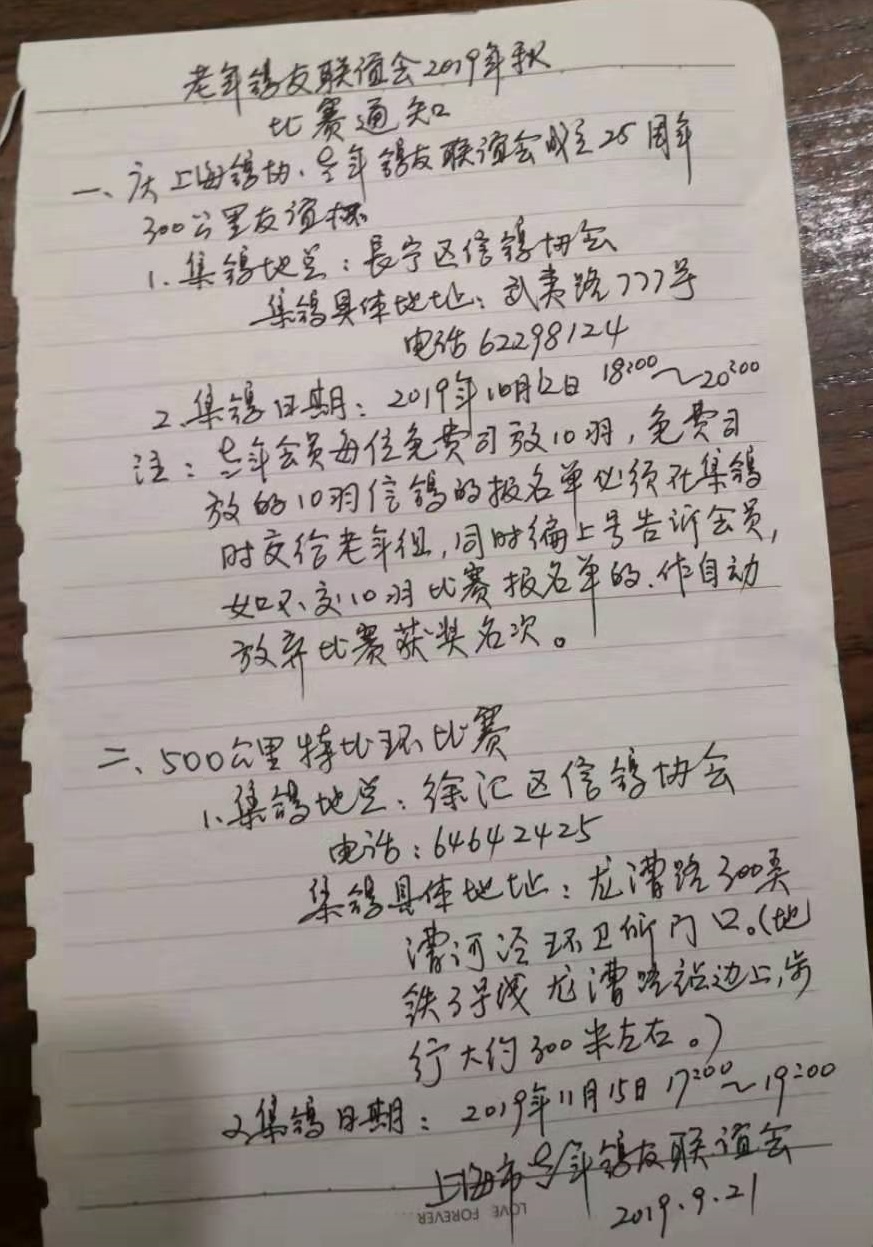 老年鸽友联谊会2019年秋
比赛通知
一、庆上海鸽协、老年鸽友联谊会成立25周年
300公里友谊杯
1.集鸽地点：長宁区信鸽协会
集鸽具体地址：武夷路777号
电话62298124
2.集鸽日期：2019年10月12日 18:00～20:00
注：老年会员每位免费司放10羽，免费司
放的10羽信鸽的报名单必须在集鸽
时交给老年组，同时编上号告诉会员，
如不交10羽比赛报名单的.作自动
放弃比赛获奖名次。
二、500公里特比环比赛
1.集鸽地点：徐汇区信鸽协会
电话：64642425
集鸽具体地址：龙漕路300弄
漕河泾环卫所门口。(地
铁3号线龙漕路站边上,步
行大约300米左右。)
2.集鸽日期：2019年11月15日 17:00～19:00
上海市老年鸽友联谊会
2019.9.21
LOVE FOREVER...